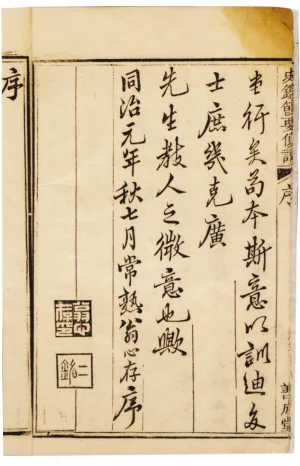 史鑑節要便讀 序
善成堂
行矣苟本斯意以訓迪多
士庶幾克廣
先生教人之微意也歟
同治元年秋七月常熟翁心存序
二銘
序